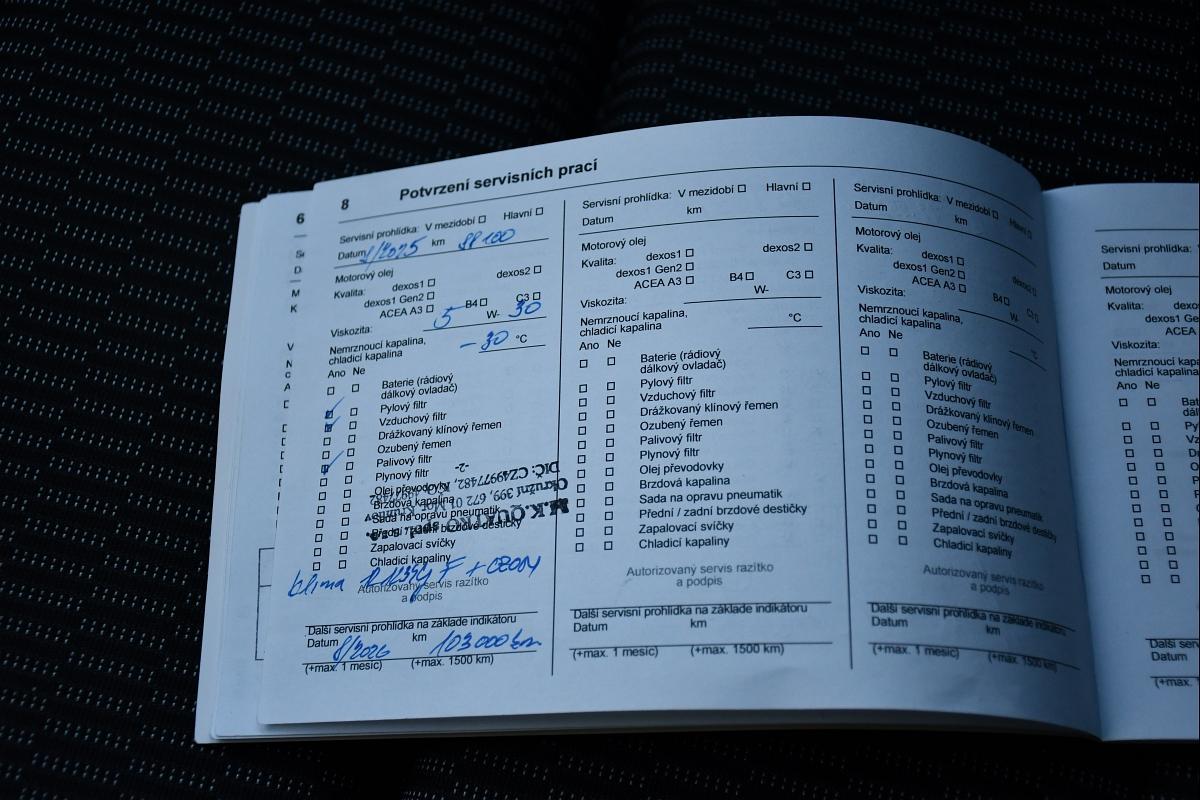 6
8 Potvrzení servisních prací
Servisní prohlídka: V mezidobí Hlavní
Datum 8/2025 km 88 100
Motorový olej
Kvalita: dexos1 dexos2
dexos1 Gen2
ACEA A3 B4 C3
Viskozita: 5 W- 30
Nemrznoucí kapalina,
chladicí kapalina -30 °C
Ano Ne
Baterie (rádiový
dálkový ovladač)
Pylový filtr
Vzduchový filtr
Drážkovaný klínový řemen
Ozubený řemen
Palivový filtr
Plynový filtr
Olej převodovky
Brzdová kapalina
Sada na opravu pneumatik
Přední / zadní brzdové destičky
Zapalovací svíčky
Chladicí kapaliny
M.K. QUATRO, spol. s r.o.
Okružní 399, 672 01 Mor. Krumlov
DIČ: CZ49977482, IČO: 49977482
-2-
klima
Autorizovaný servis razítko
a podpis
Další servisní prohlídka na základe indikátoru
Datum 8/2026 km 103 000 km
(+max. 1 mesíc) (+max. 1500 km)
Servisní prohlídka: V mezidobí Hlavní
Datum km
Motorový olej
Kvalita: dexos1 dexos2
dexos1 Gen2
ACEA A3 B4 C3
Viskozita: W-
Nemrznoucí kapalina,
chladicí kapalina °C
Ano Ne
Baterie (rádiový
dálkový ovladač)
Pylový filtr
Vzduchový filtr
Drážkovaný klínový řemen
Ozubený řemen
Palivový filtr
Plynový filtr
Olej převodovky
Brzdová kapalina
Sada na opravu pneumatik
Přední / zadní brzdové destičky
Zapalovací svíčky
Chladicí kapaliny
Autorizovaný servis razítko
a podpis
Další servisní prohlídka na základe indikátoru
Datum km
(+max. 1 mesíc) (+max. 1500 km)
Servisní prohlídka: V mezidobí Hlavní
Datum km
Motorový olej
Kvalita: dexos1 dexos2
dexos1 Gen2
ACEA A3 B4 C3
Viskozita: W-
Nemrznoucí kapalina,
chladicí kapalina °C
Ano Ne
Baterie (rádiový
dálkový ovladač)
Pylový filtr
Vzduchový filtr
Drážkovaný klínový řemen
Ozubený řemen
Palivový filtr
Plynový filtr
Olej převodovky
Brzdová kapalina
Sada na opravu pneumatik
Přední / zadní brzdové destičky
Zapalovací svíčky
Chladicí kapaliny
Autorizovaný servis razítko
a podpis
Další servisní prohlídka na základe indikátoru
Datum km
(+max. 1 mesíc) (+max. 1500 km)
Servisní prohlídka:
Datum
Motorový olej
Kvalita: dexos1
dexos1 Ge
ACEA
Viskozita:
Nemrznoucí kapa
chladicí kapalina
Ano Ne
Datum
(+max. 1